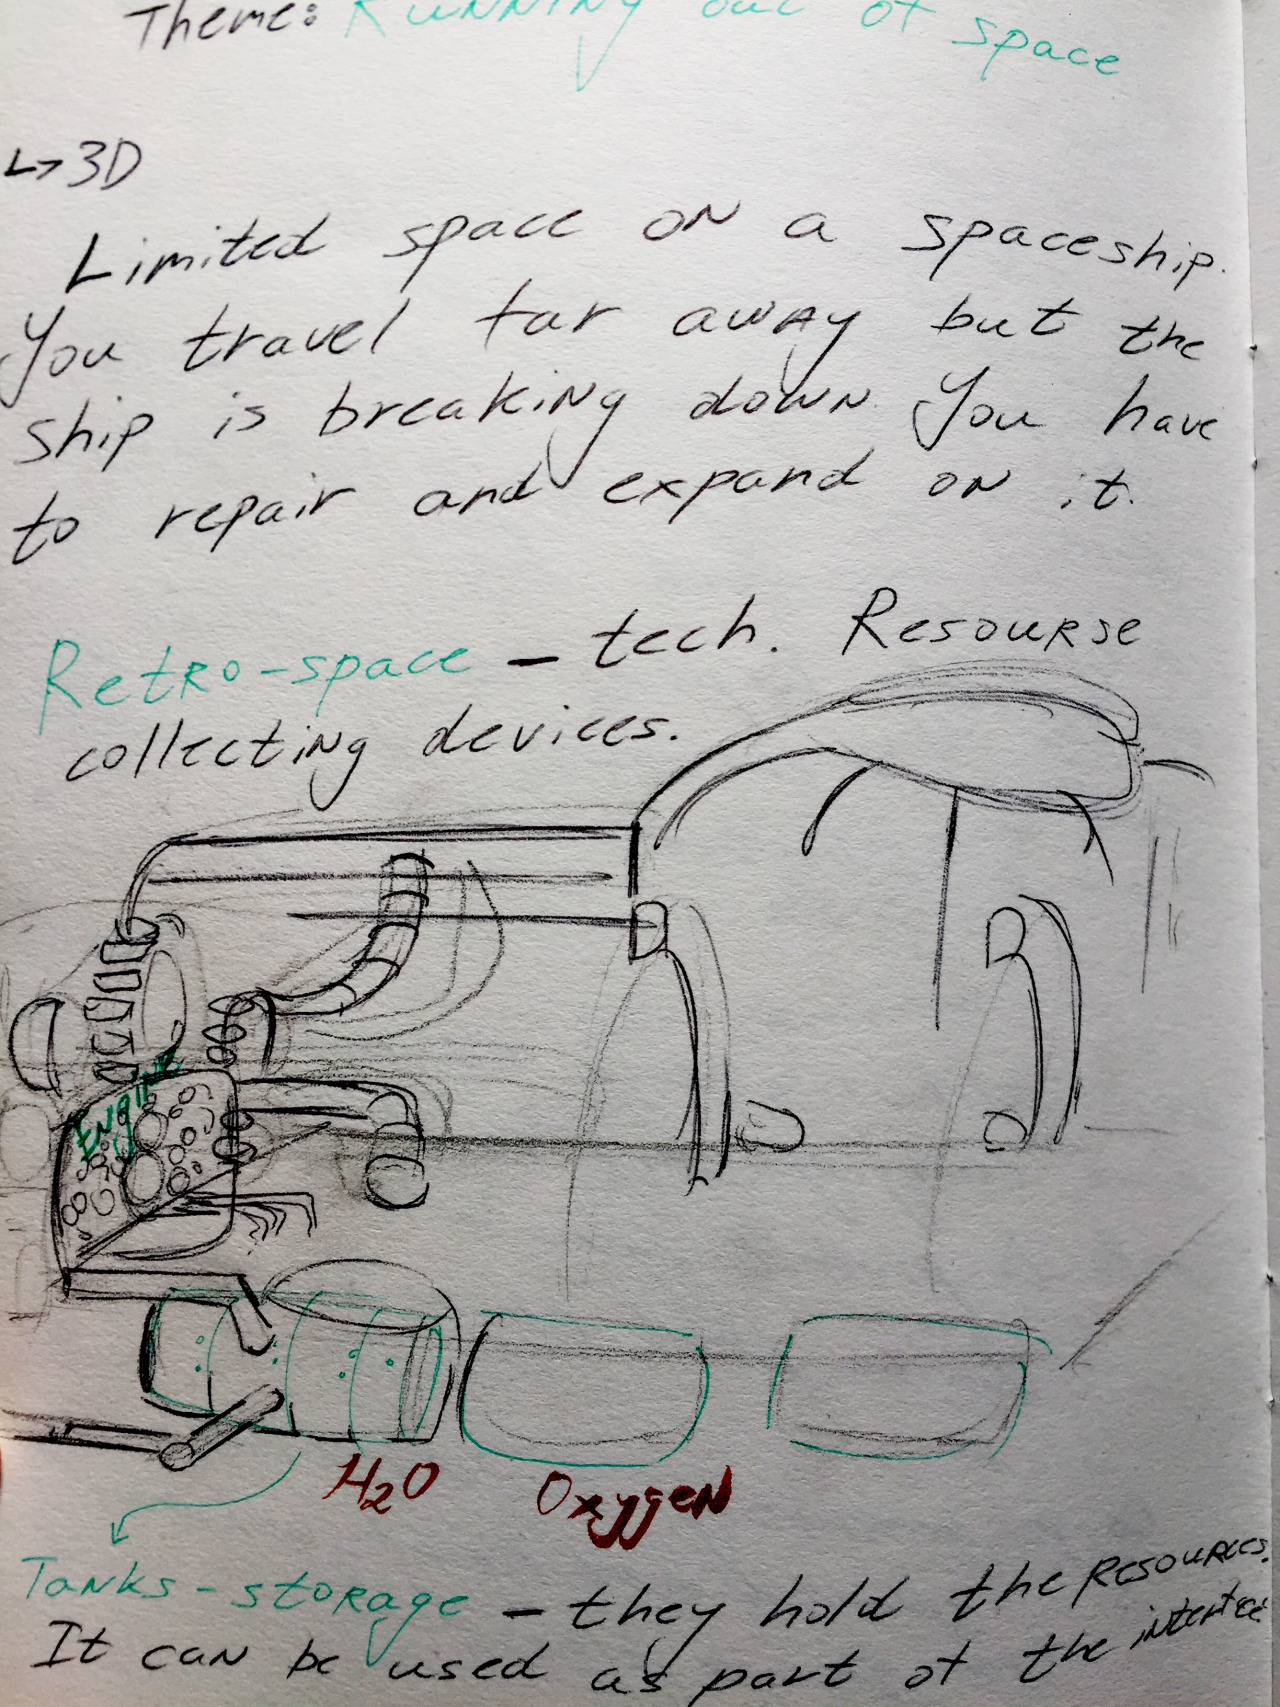 Theme: Running out of space
↳ 3D
Limited space on a spaceship.
You travel far away but the
ship is breaking down. You have
to repair and expand on it.
Retro-space - tech. Resourse
collecting devices.
Engine
H2O Oxygen
Tanks - storage - they hold the resources.
It can be used as part of the